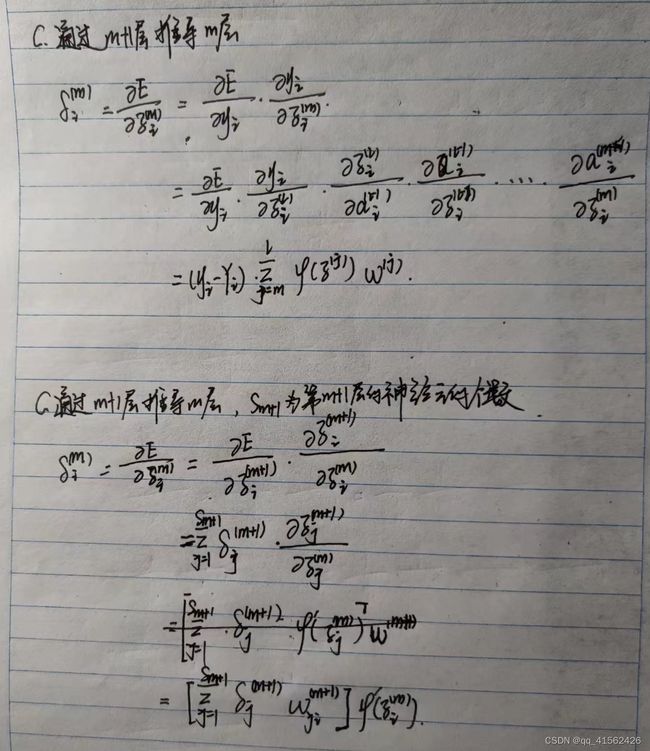 C. 通过 m+1层推导m层
δ_i^(m) = ∂E/∂z_i^(m) = ∂E/∂y_i · ∂y_i/∂z_i^(m).
= ∂E/∂y_i · ∂y_i/∂z_i^(L) · ∂z_i^(L)/∂a_i^(L-1) · ∂a_i^(L-1)/∂z_i^(L-1) · ⋯ · ∂a_i^(m+1)/∂z_i^(m)
= (y_i - Y_i) · Σ_{j=m}^{L} φ(z^(j)) w^(j).
C. 通过 m+1层推导m层, S_{m+1} 为第m+1层的神经元的个数.
δ_i^(m) = ∂E/∂z_i^(m) = ∂E/∂z_j^(m+1) · ∂z_i^(m+1)/∂z_i^(m)
= Σ_{j=1}^{S_{m+1}} δ_j^(m+1) · ∂z_j^(m+1)/∂z_j^(m)
= [Σ_{j=1}^{S_{m+1}} · δ_j^(m+1) φ(z_j^(m))^T w^(m+1)
= [Σ_{j=1}^{S_{m+1}} δ_j^(m+1) w_{ji}^(m+1)] φ(z_i^(m)).
CSDN @qq_41562426